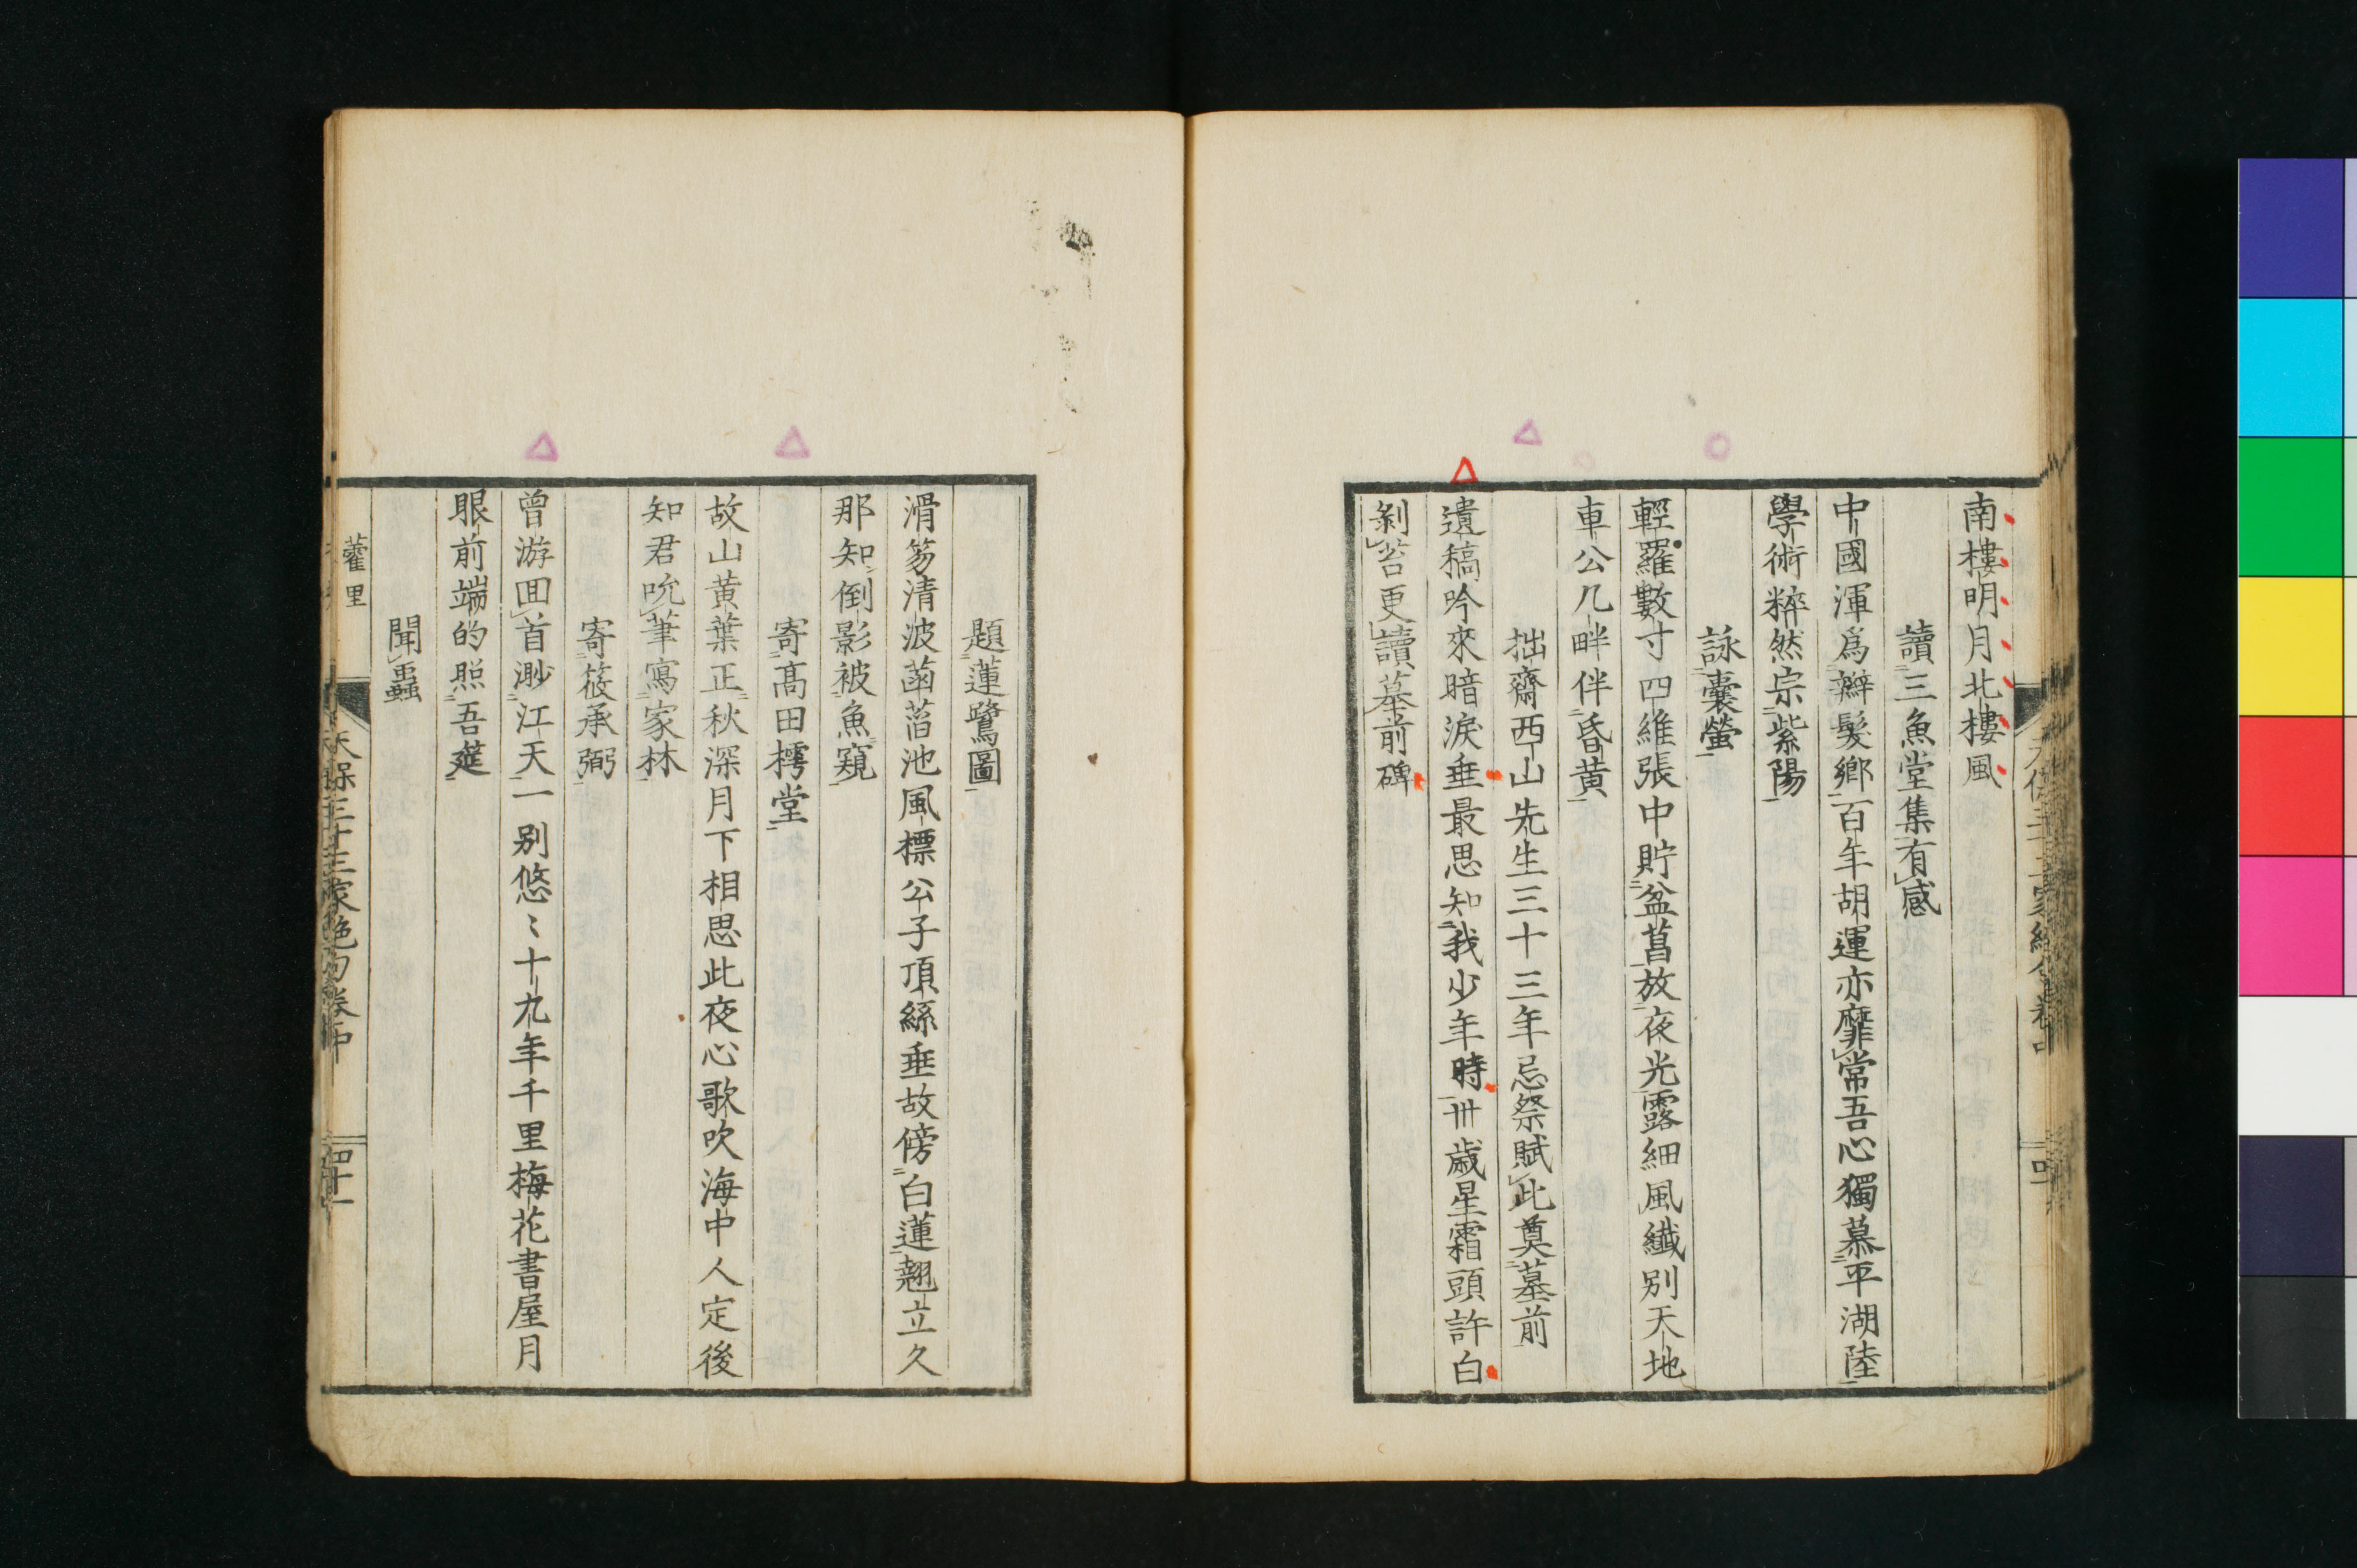 南樓明月北樓風
讀三魚堂集有感
中國渾爲辮髮鄉百年胡運亦靡常吾心獨慕平湖陸
學術粹然宗紫陽
詠囊螢
輕羅數寸四維張中貯盆菖放夜光露細風纖別天地
車公几畔伴昏黄
拙齋西山先生三十三年忌祭賦此奠墓前
遺稿吟來暗淚垂最思知我少年時卅歲星霜頭許白
剝苔更讀墓前碑
題蓮鷺圖
滑笏清波菡萏池風標公子頂絲垂故傍白蓮翹立久
那知倒影被魚窺
寄髙田樗堂
故山黄葉正秋深月下相思此夜心歌吹海中人定後
知君吮筆寫家林
寄筱承弼
曾游囬首渺江天一別悠〻十九年千里梅花書屋月
眼前端的照吾筵
聞蟲
藿里
天保三十三家絶句卷中
四十一